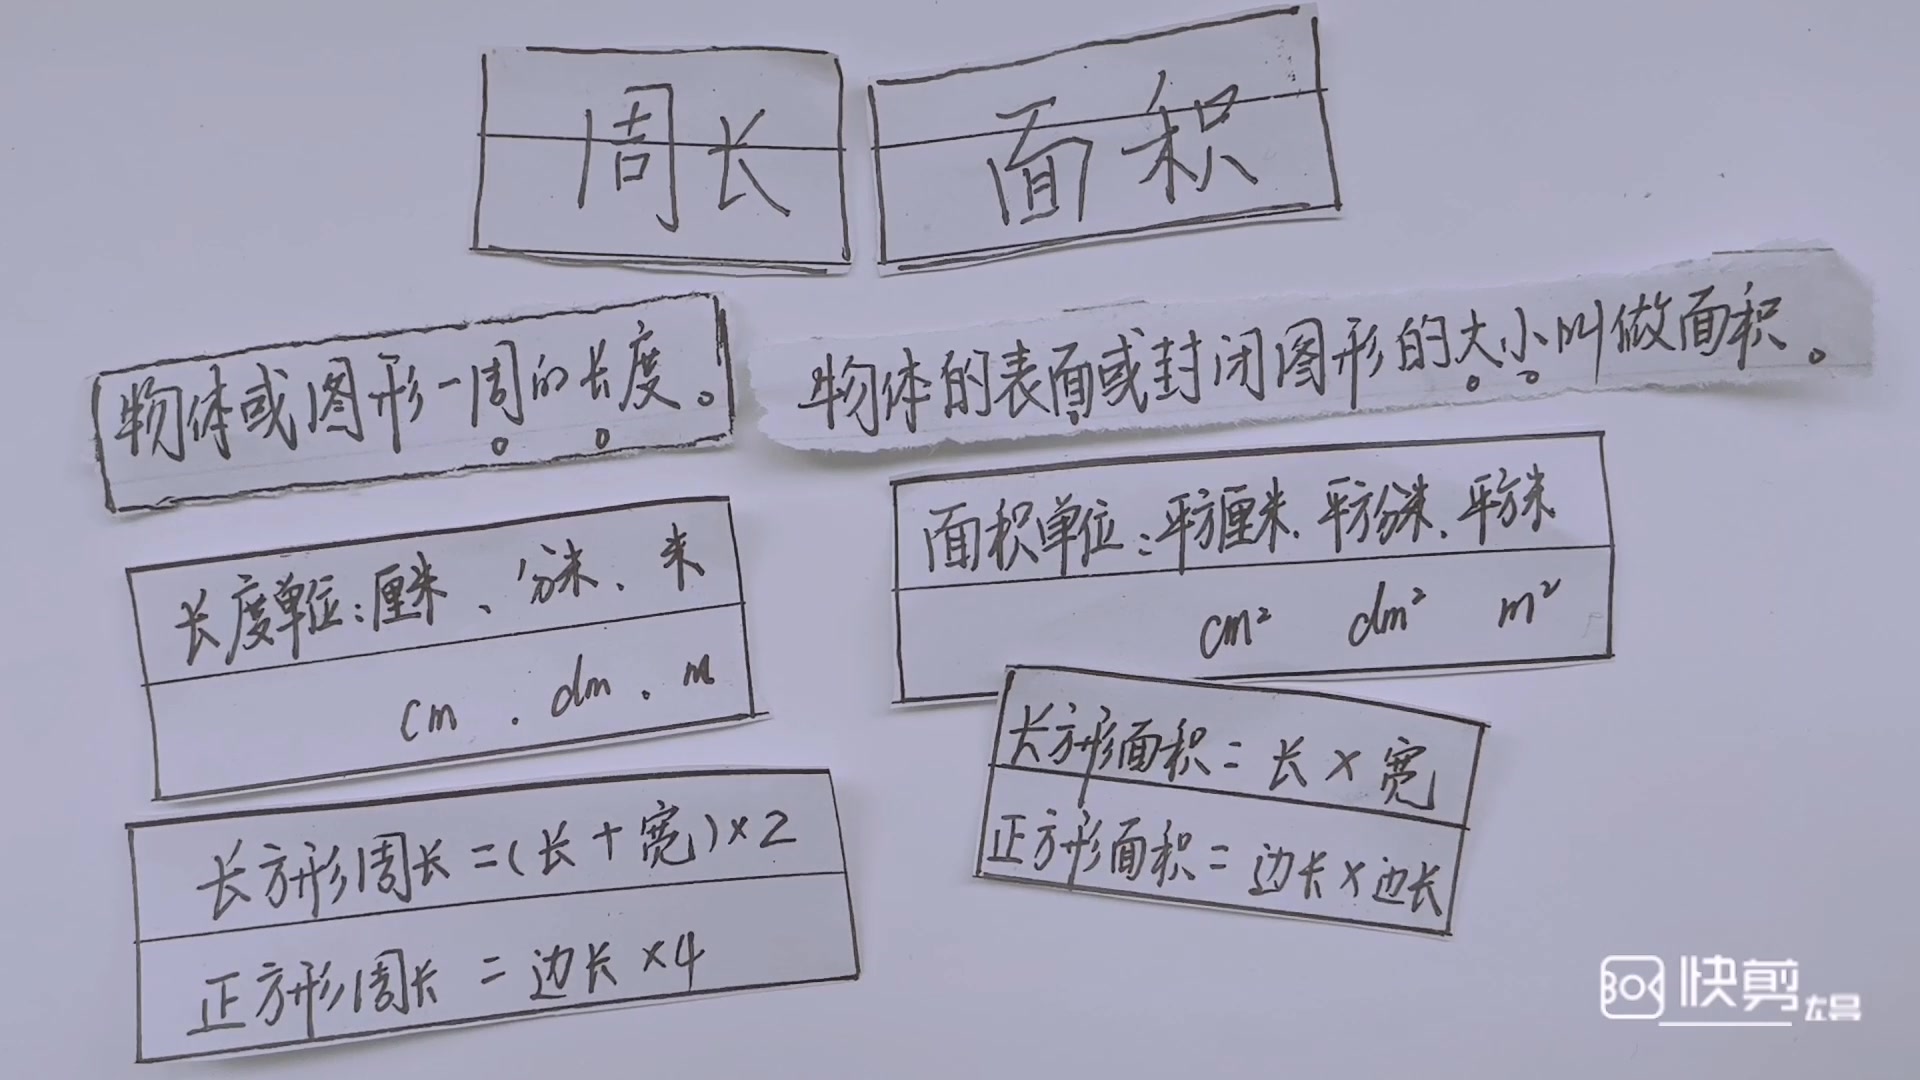 周长
面积
物体或图形一周的长度。
物体的表面或封闭图形的大小叫做面积。
长度单位：厘米、分米、米
cm . dm . m
面积单位：平方厘米、平方分米、平方米
cm² dm² m²
长方形周长=(长+宽)×2
正方形周长=边长×4
长方形面积=长×宽
正方形面积=边长×边长
快剪